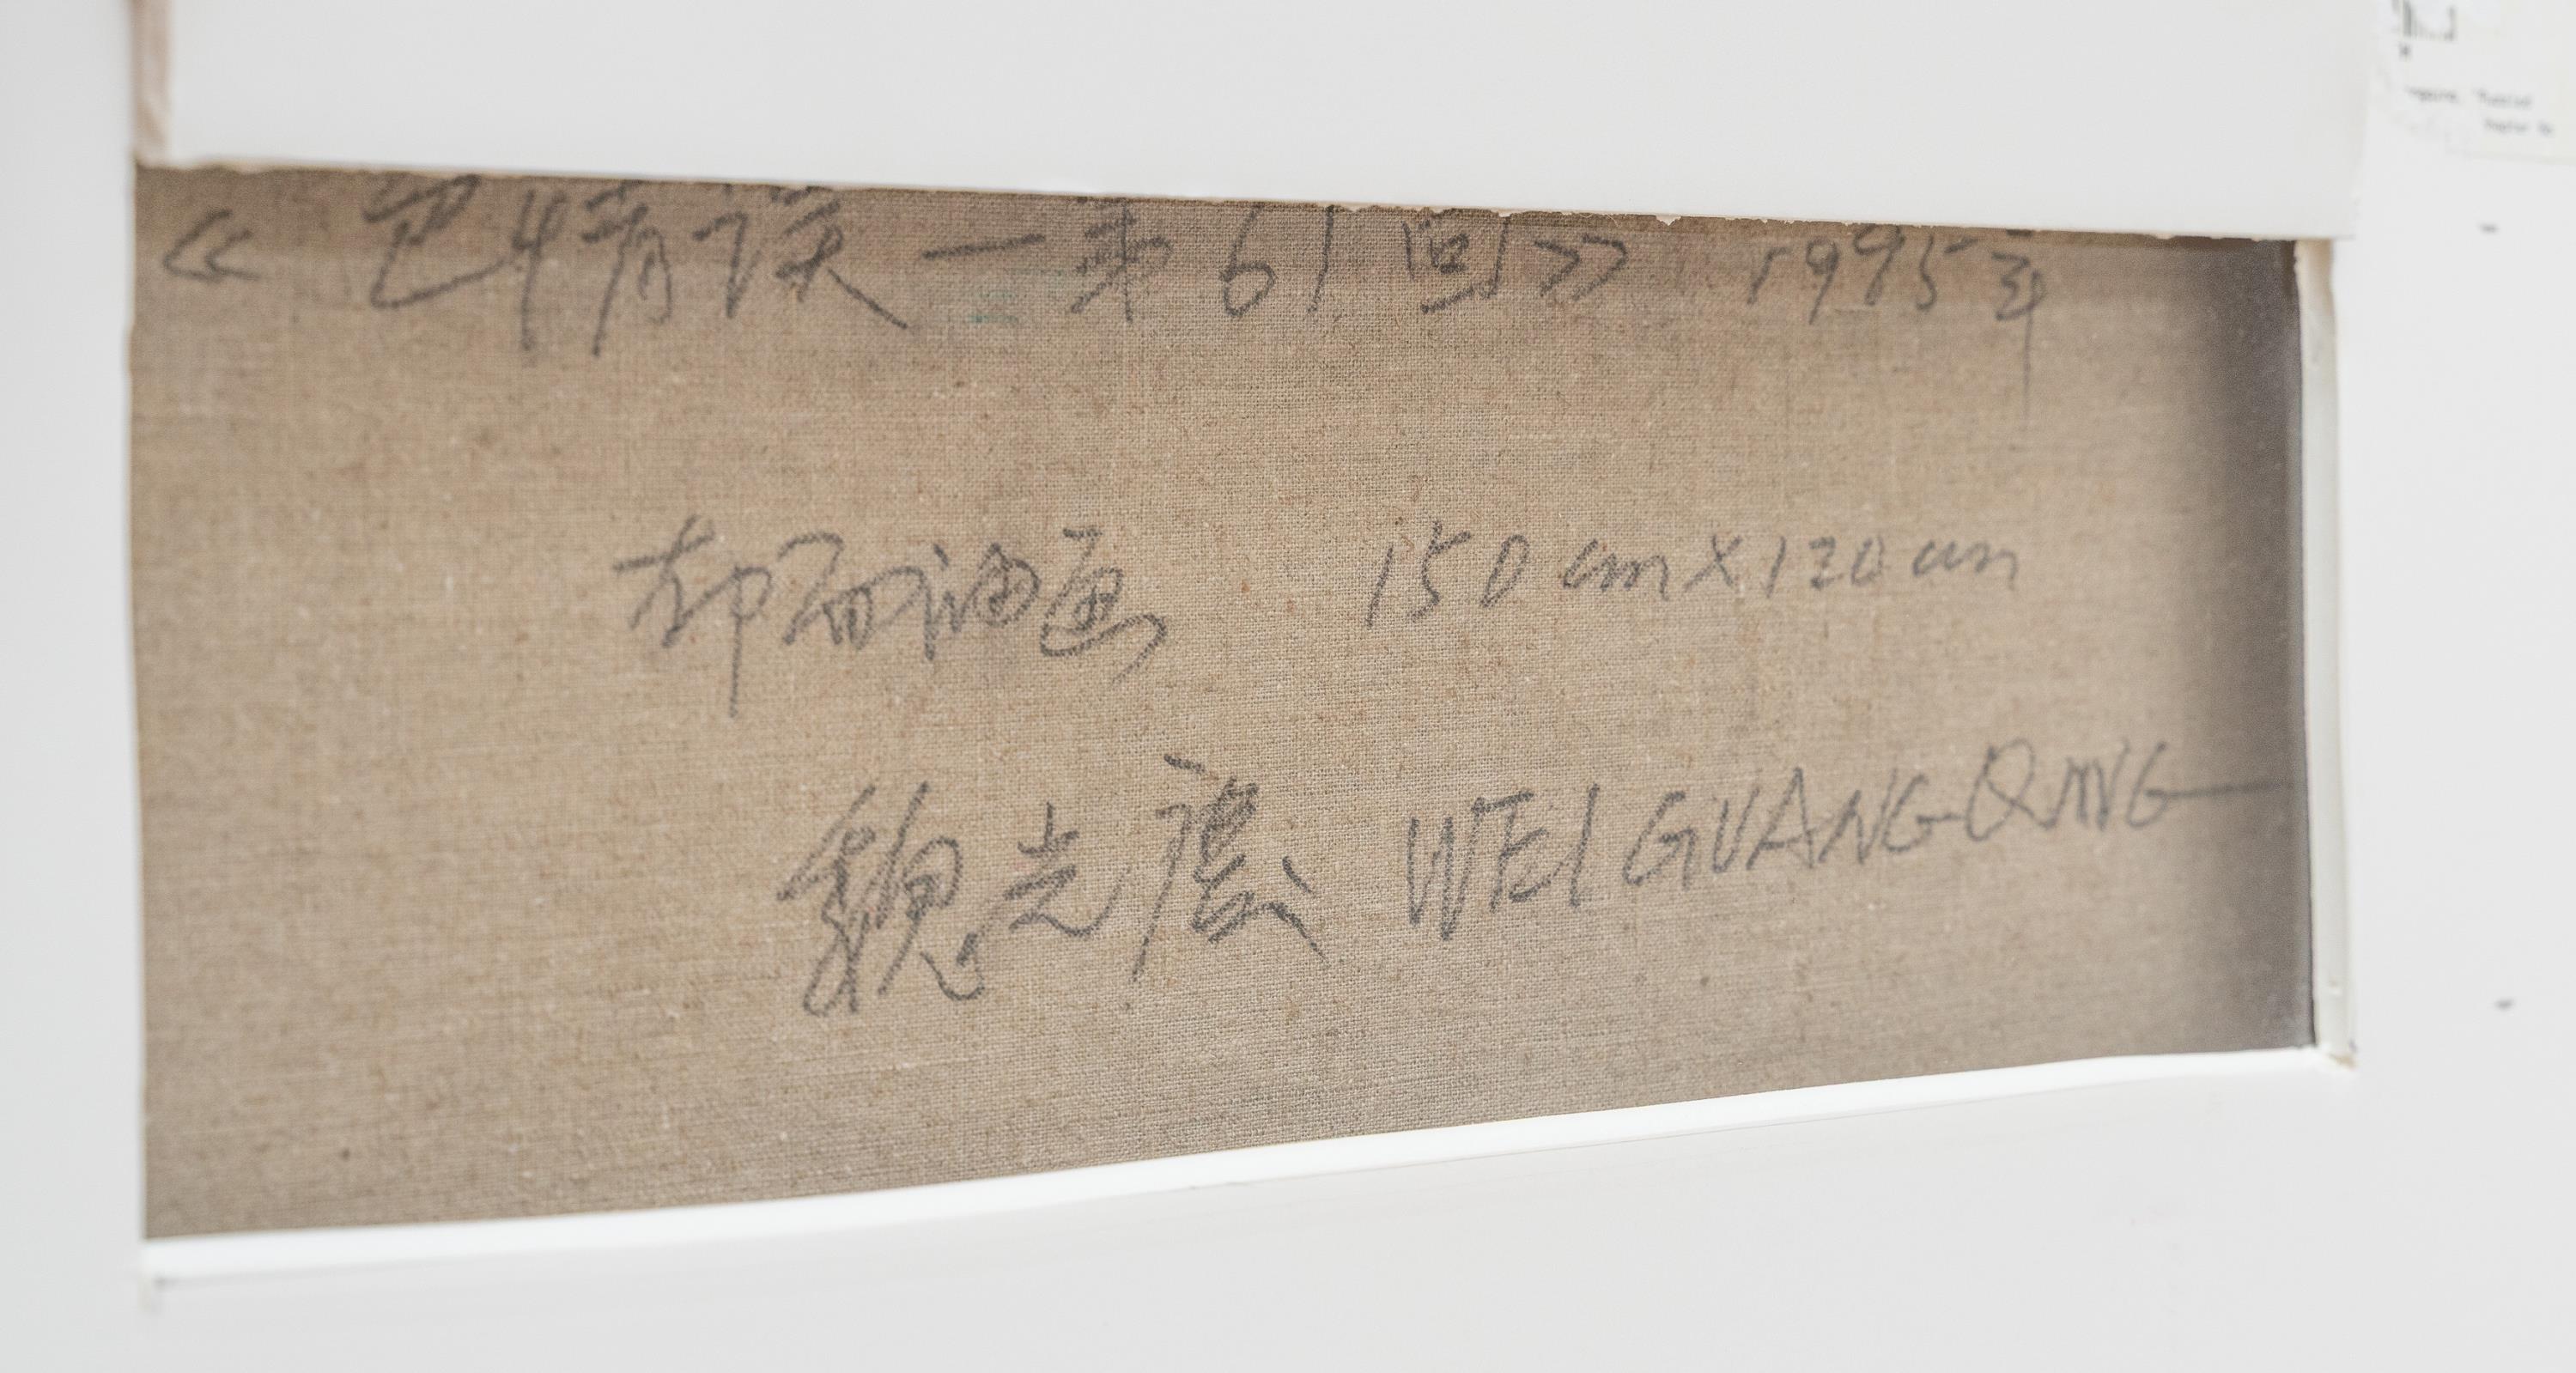 《色情误一第61回》 1995年
布面油画 150cm×120cm
魏光慶 WEI GUANG QING